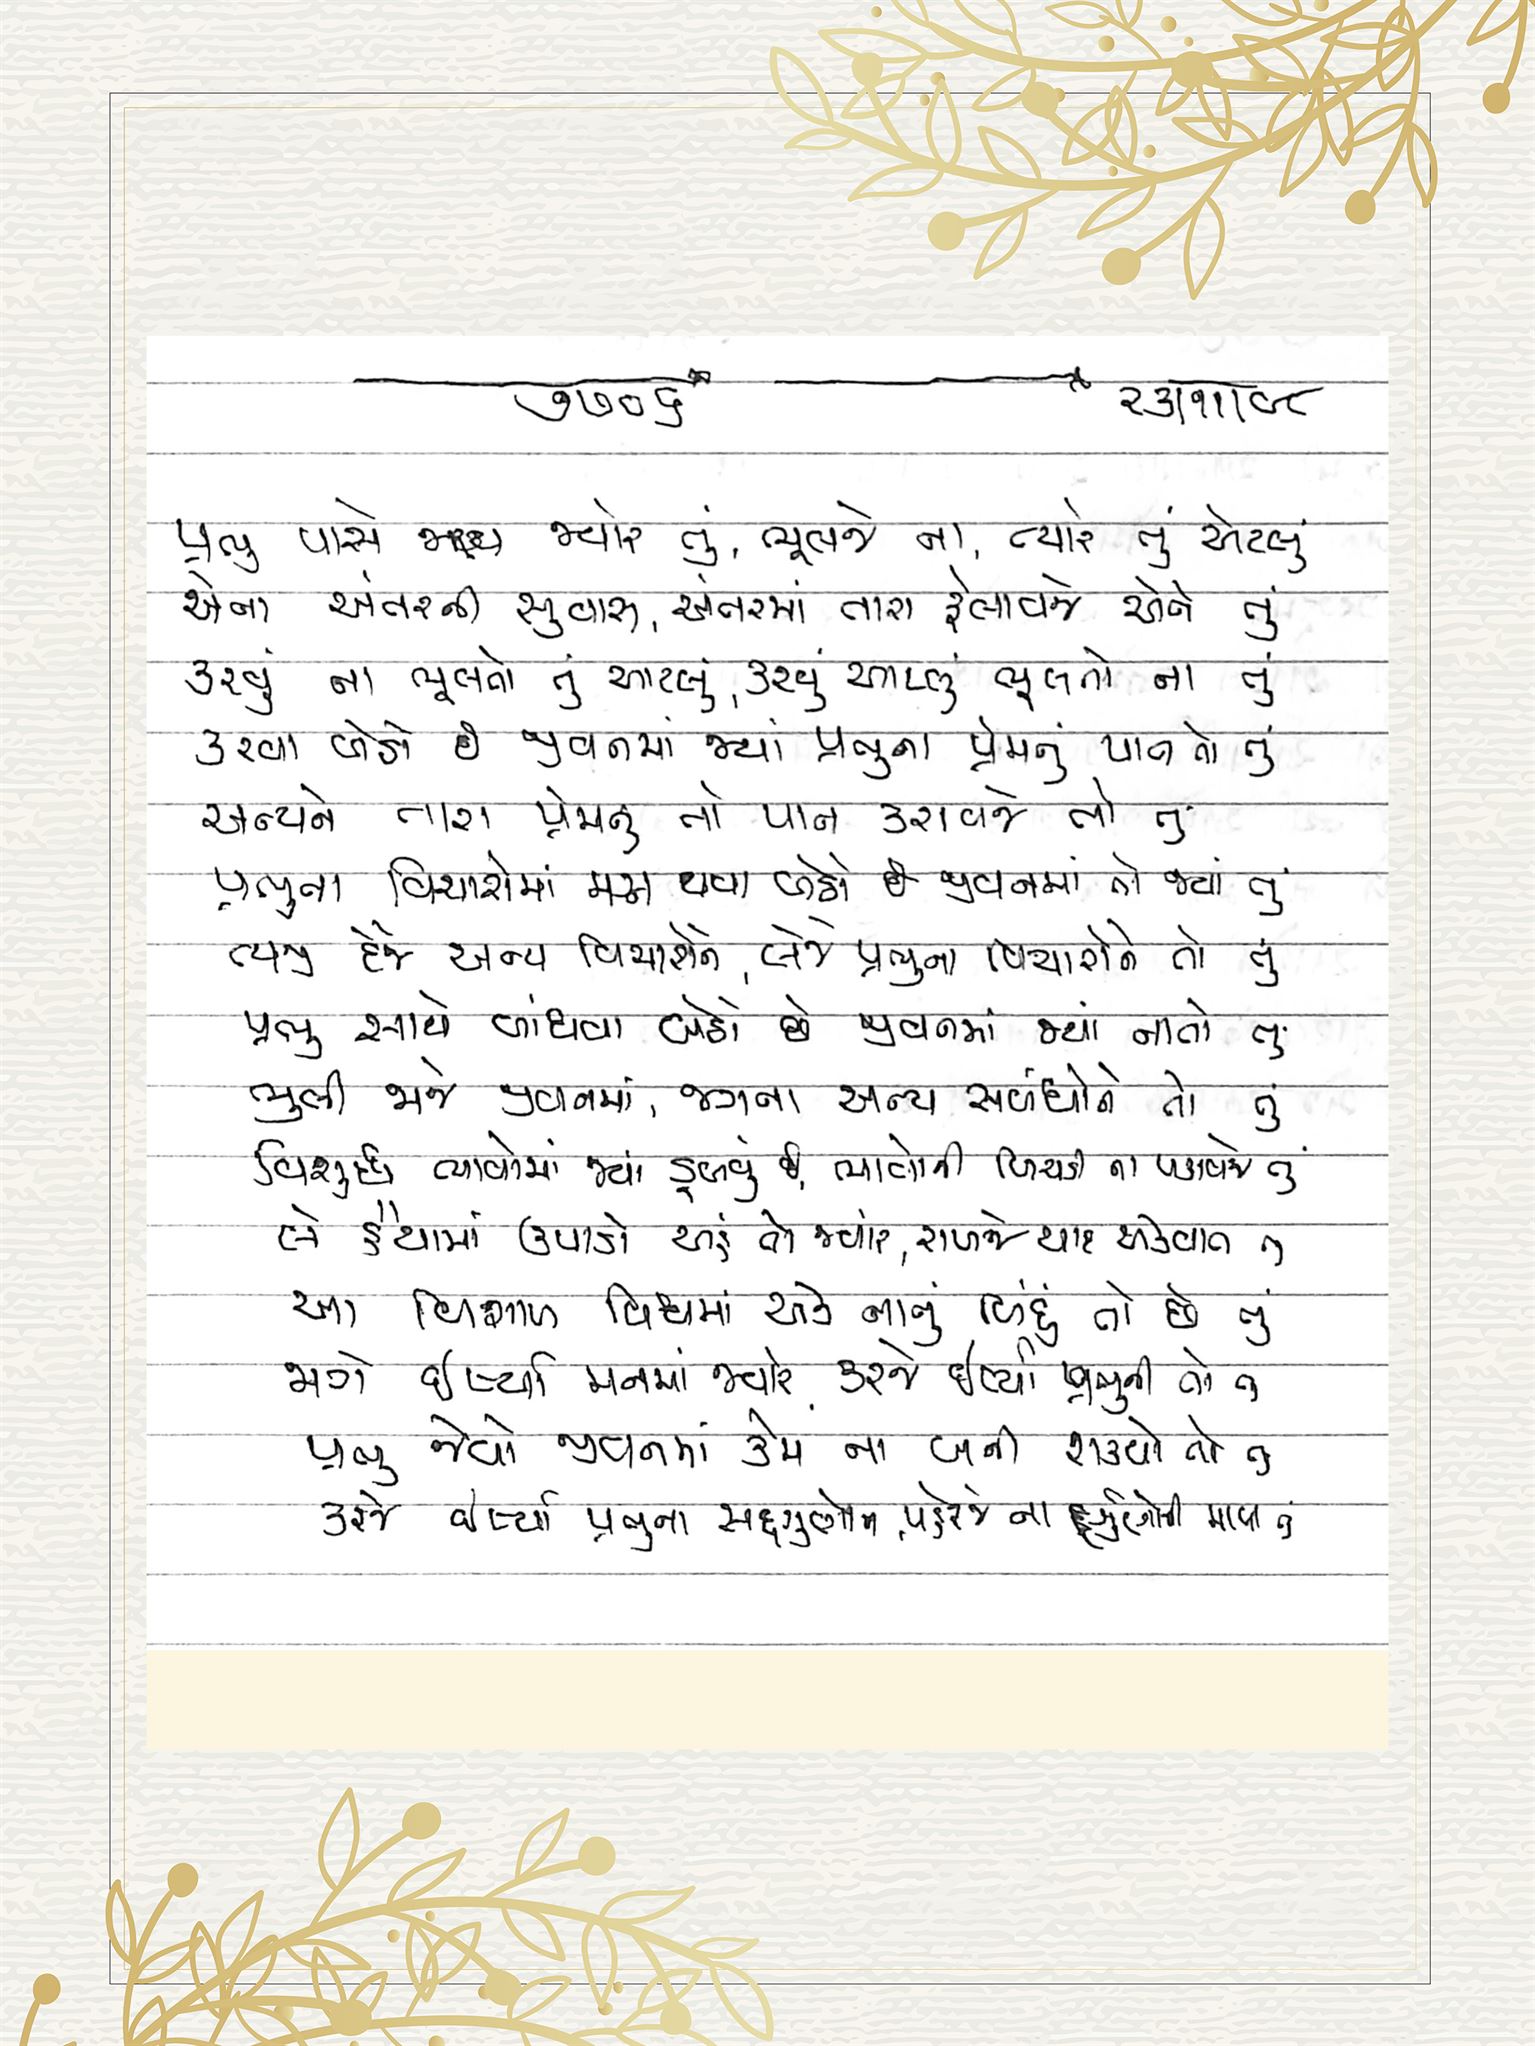 ૭૭૦૬ ૨૩/૧૧/૯૮
પ્રભુ પાસે જાય જ્યારે તું, ભૂલજે ના, ત્યારે તું એટલું
એના અંતરની સુવાસ, અંતરમાં તારા ફેલાવજે એને તું
કરવું ના ભૂલતો તું આટલું, કરવું આટલું ભૂલતો ના તું
કરવા બેઠો છે જીવનમાં જ્યાં પ્રભુના પ્રેમનું પાન તો તું
અન્યને તારા પ્રેમનુ તો પાન કરાવજે તો તુ
પ્રભુના વિચારોમાં મગ્ન થવા બેઠો છે જીવનમાં તો જ્યાં તું
ત્યજી દેજે અન્ય વિચારોને, લેજે પ્રભુના વિચારોને તો તું
પ્રભુ સાથે બાંધવા બેઠો છે જીવનમાં જ્યાં નાતો તું
ભુલી જાજે જીવનમાં, જગના અન્ય સબંધોને તો તું
વિશુદ્ધ ભાવોમાં જ્યાં ડૂબવું છે, ભાવોની ખિચડી ના પકાવજે તું
લે હૈયામાં ઉપાડો અહં તો જ્યારે, રાખજે યાદ એકવાત તુ
આ વિશાળ વિશ્વમાં એક નાનું બિંદુ તો છે તું
જાગે ઈર્ષ્યા મનમાં જ્યારે, કરજે ઈર્ષ્યા પ્રભુની તો તુ
પ્રભુ જેવો જીવનમાં કેમ ના બની શક્યો તો તુ
કરજે ઈર્ષ્યા પ્રભુના સદ્દગુણોની, પહેરજે ના દુર્ગુણોની માળા તું